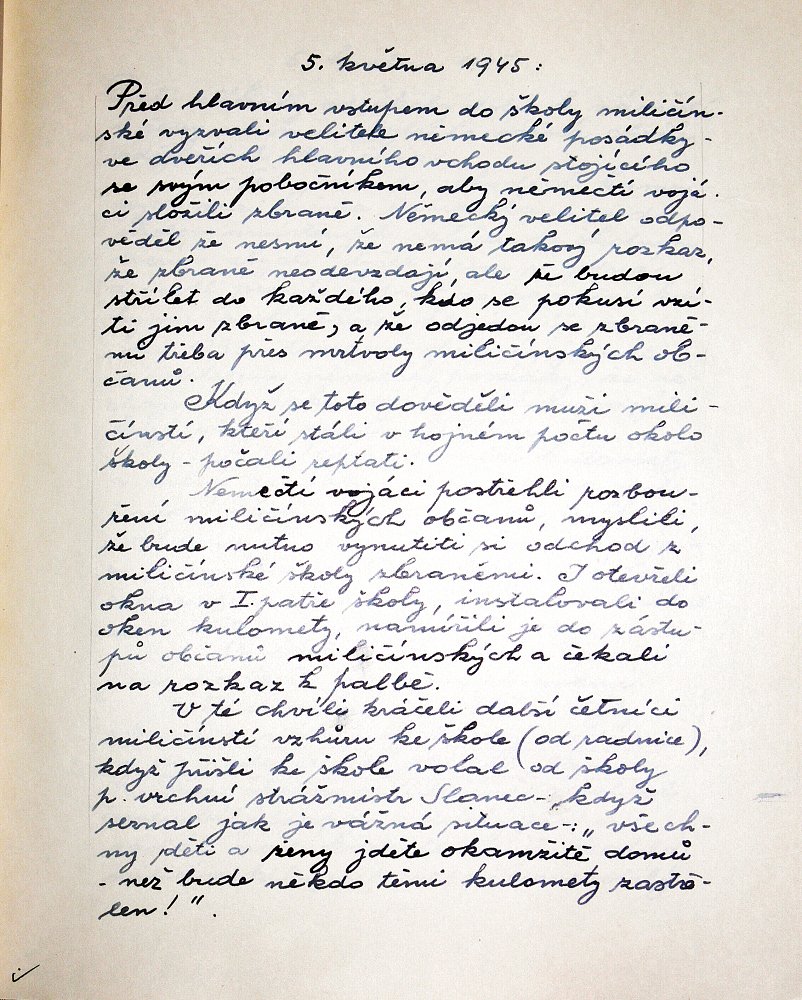 5. května 1945:
Před hlavním vstupem do školy miličín-
ské vyzvali velitele německé posádky-
ve dveřích hlavního vchodu stojícího
se svým pobočníkem, aby němečtí vojá-
ci složili zbraně. Německý velitel odpo-
věděl že nesmí, že nemá takový rozkaz,
že zbraně neodevzdají, ale že budou
střílet do každého, kdo se pokusí vzí-
ti jim zbraně, a že odjedou se zbraně-
mi třeba přes mrtvoly miličínských ob-
čanů.
Když se toto dověděli muži mili-
čínstí, kteří stáli v hojném počtu okolo
školy - počali reptati.
Nemečtí vojáci postřehli rozbou-
ření miličínských občanů, myslili,
že bude nutno vynutiti si odchod z
miličínské školy zbraněmi. I otevřeli
okna v I. patře školy, instalovali do
oken kulomety, namířili je do zástu-
pů občanů miličínských a čekali
na rozkaz k palbě.
V té chvíli kráčeli další četníci
miličínstí vzhůru ke škole (od radnice),
když přišli ke škole volal od školy
p. vrchní strážmistr Slanec-„když
seznal jak je vážná situace-:„všech-
ny děti a ženy jděte okamžitě domů
- než bude někdo těmi kulomety zastře-
len!".